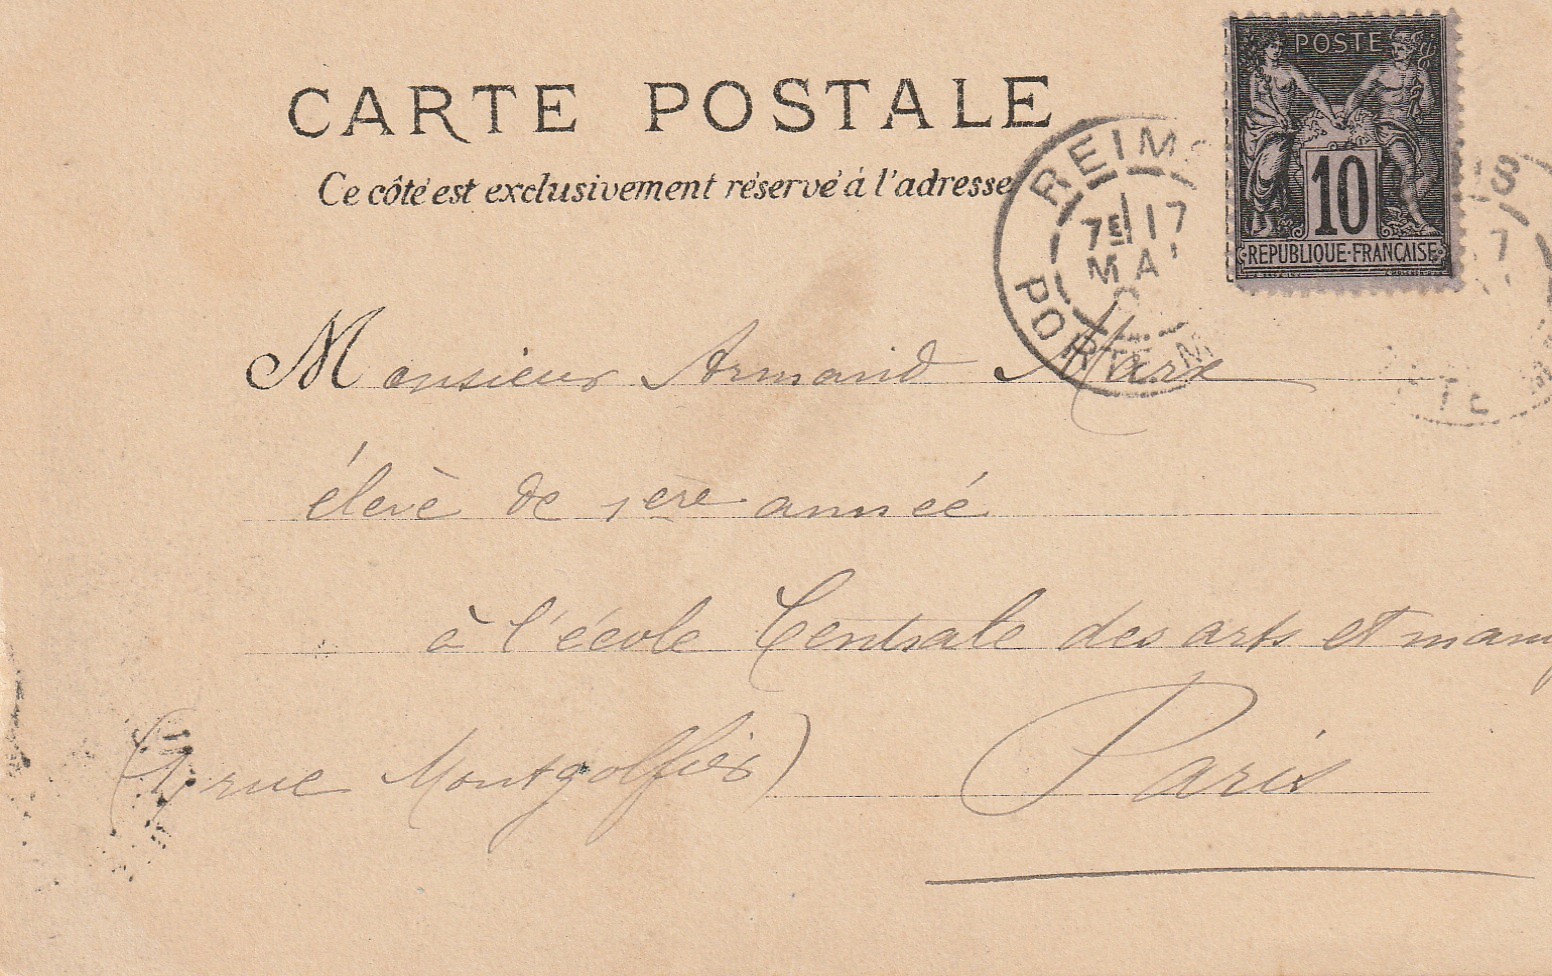 CARTE POSTALE
Ce côté est exclusivement réservé à l'adresse
POSTE
10
REPUBLIQUE·FRANÇAISE
REIMS
7E 17
MAI
PORTE M
7
TE
Monsieur Armand Marx
élevè de 1ère année
à l'école Centrale des arts et manu
(1, rue Montgolfier) Paris